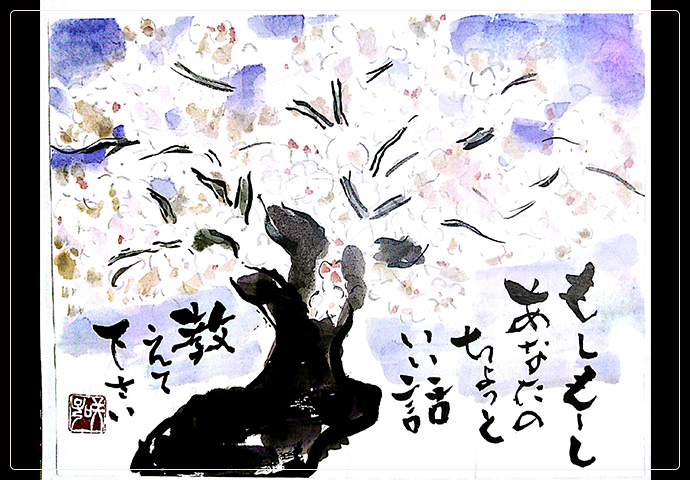 もしもーし
あなたの
ちょっと
いい話
教
えて
下さい